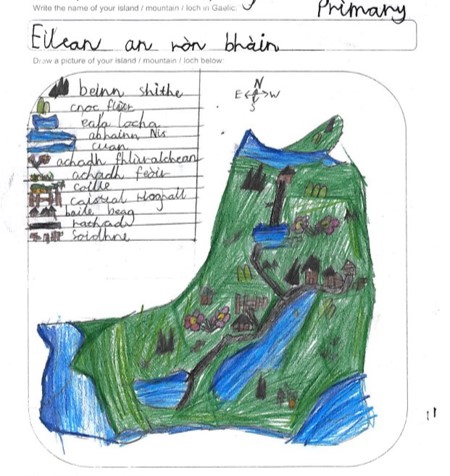 Write the name of your island / mountain / loch in Gaelic.
Primary
Eilean an ròn bhàin
Draw a picture of your island / mountain / loch below:
beinn shithe
cnoc
eafa locha
abhainn Nis
cuan
achadh
achadh feòir
coille
caisteal
baile beag
rachadh
N
E W
S